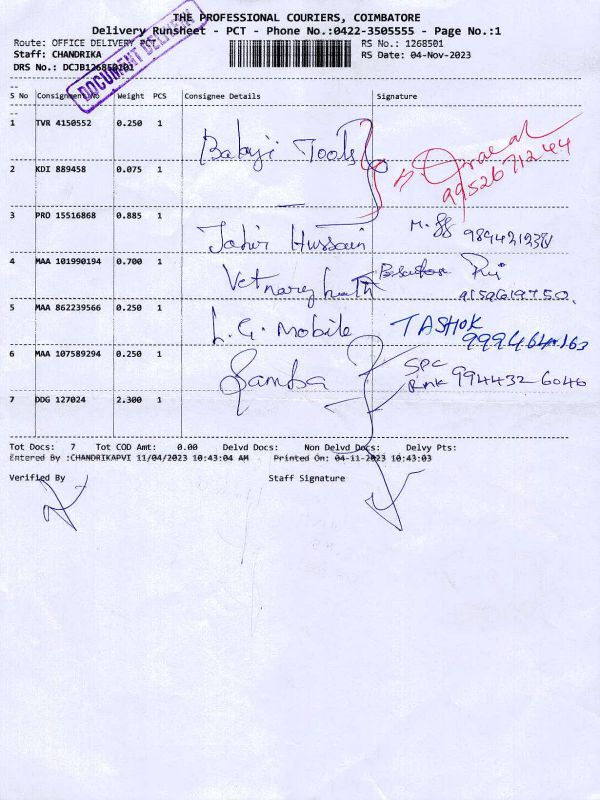 THE PROFESSIONAL COURIERS, COIMBATORE
Delivery Runsheet - PCT - Phone No.:0422-3505555 - Page No.:1
Route: OFFICE DELIVERY PCT
RS No.: 1268501
Staff: CHANDRIKA
RS Date: 04-Nov-2023
DRS No.: DCJB126850101
DOCUMENT DELIVERY
S No Consignment No Weight PCS Consignee Details Signature
1 TVR 4150552 0.250 1
Babaji Tools
9952671244
2 KDI 889458 0.075 1
3 PRO 15516868 0.885 1
Jahir Hussain M.
4 MAA 101990194 0.700 1
Vetnary
5 MAA 862239566 0.250 1
L.G. Mobile TASHOK
6 MAA 107589294 0.250 1
Samba SPC
994432 6040
7 DDG 127024 1 2.300
Tot Docs: 7 Tot COD Amt: 0.00 Delvd Docs: Non Delvd Docs: Delvy Pts:
Entered By :CHANDRIKAPVI 11/04/2023 10:43:04 AM Printed On: 04-11-2023 10:43:03
Verified By Staff Signature